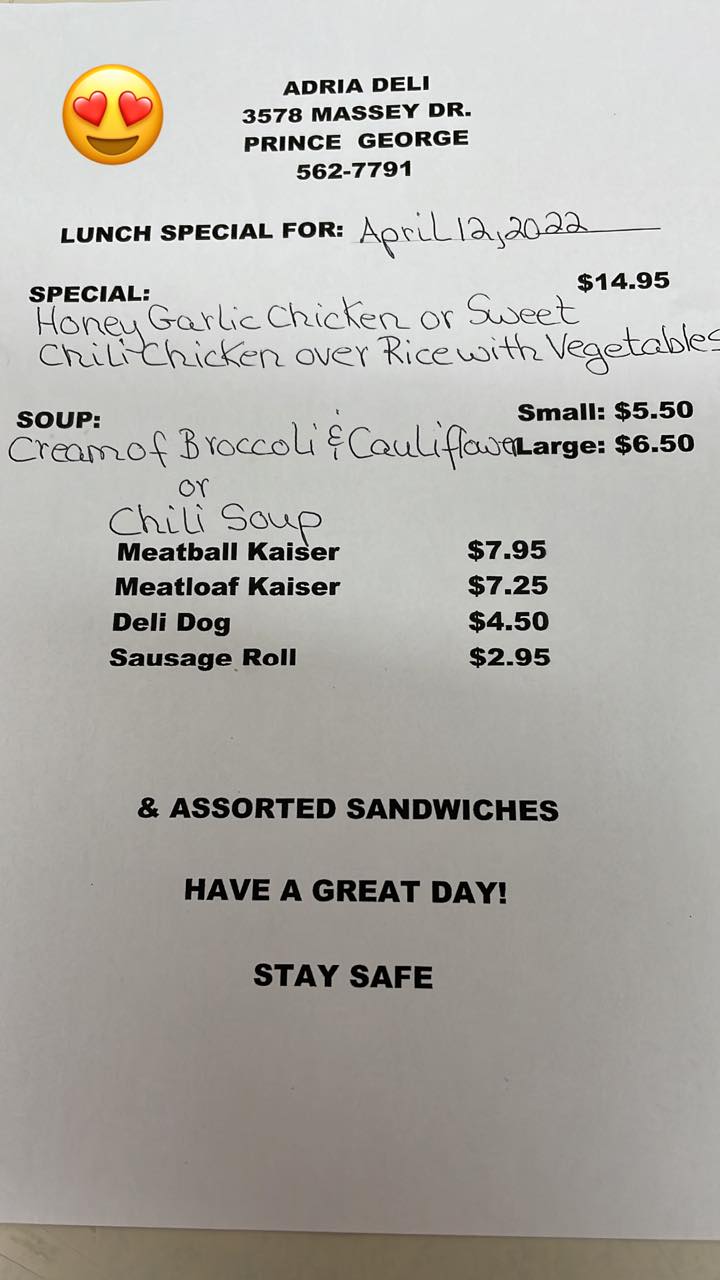 ADRIA DELI
3578 MASSEY DR.
PRINCE GEORGE
562-7791
LUNCH SPECIAL FOR: April 12, 2022
SPECIAL: $14.95
Honey Garlic Chicken or Sweet
Chili Chicken over Rice with Vegetables
SOUP: Small: $5.50
Cream of Broccoli & Cauliflower Large: $6.50
or
Chili Soup
Meatball Kaiser $7.95
Meatloaf Kaiser $7.25
Deli Dog $4.50
Sausage Roll $2.95
& ASSORTED SANDWICHES
HAVE A GREAT DAY!
STAY SAFE